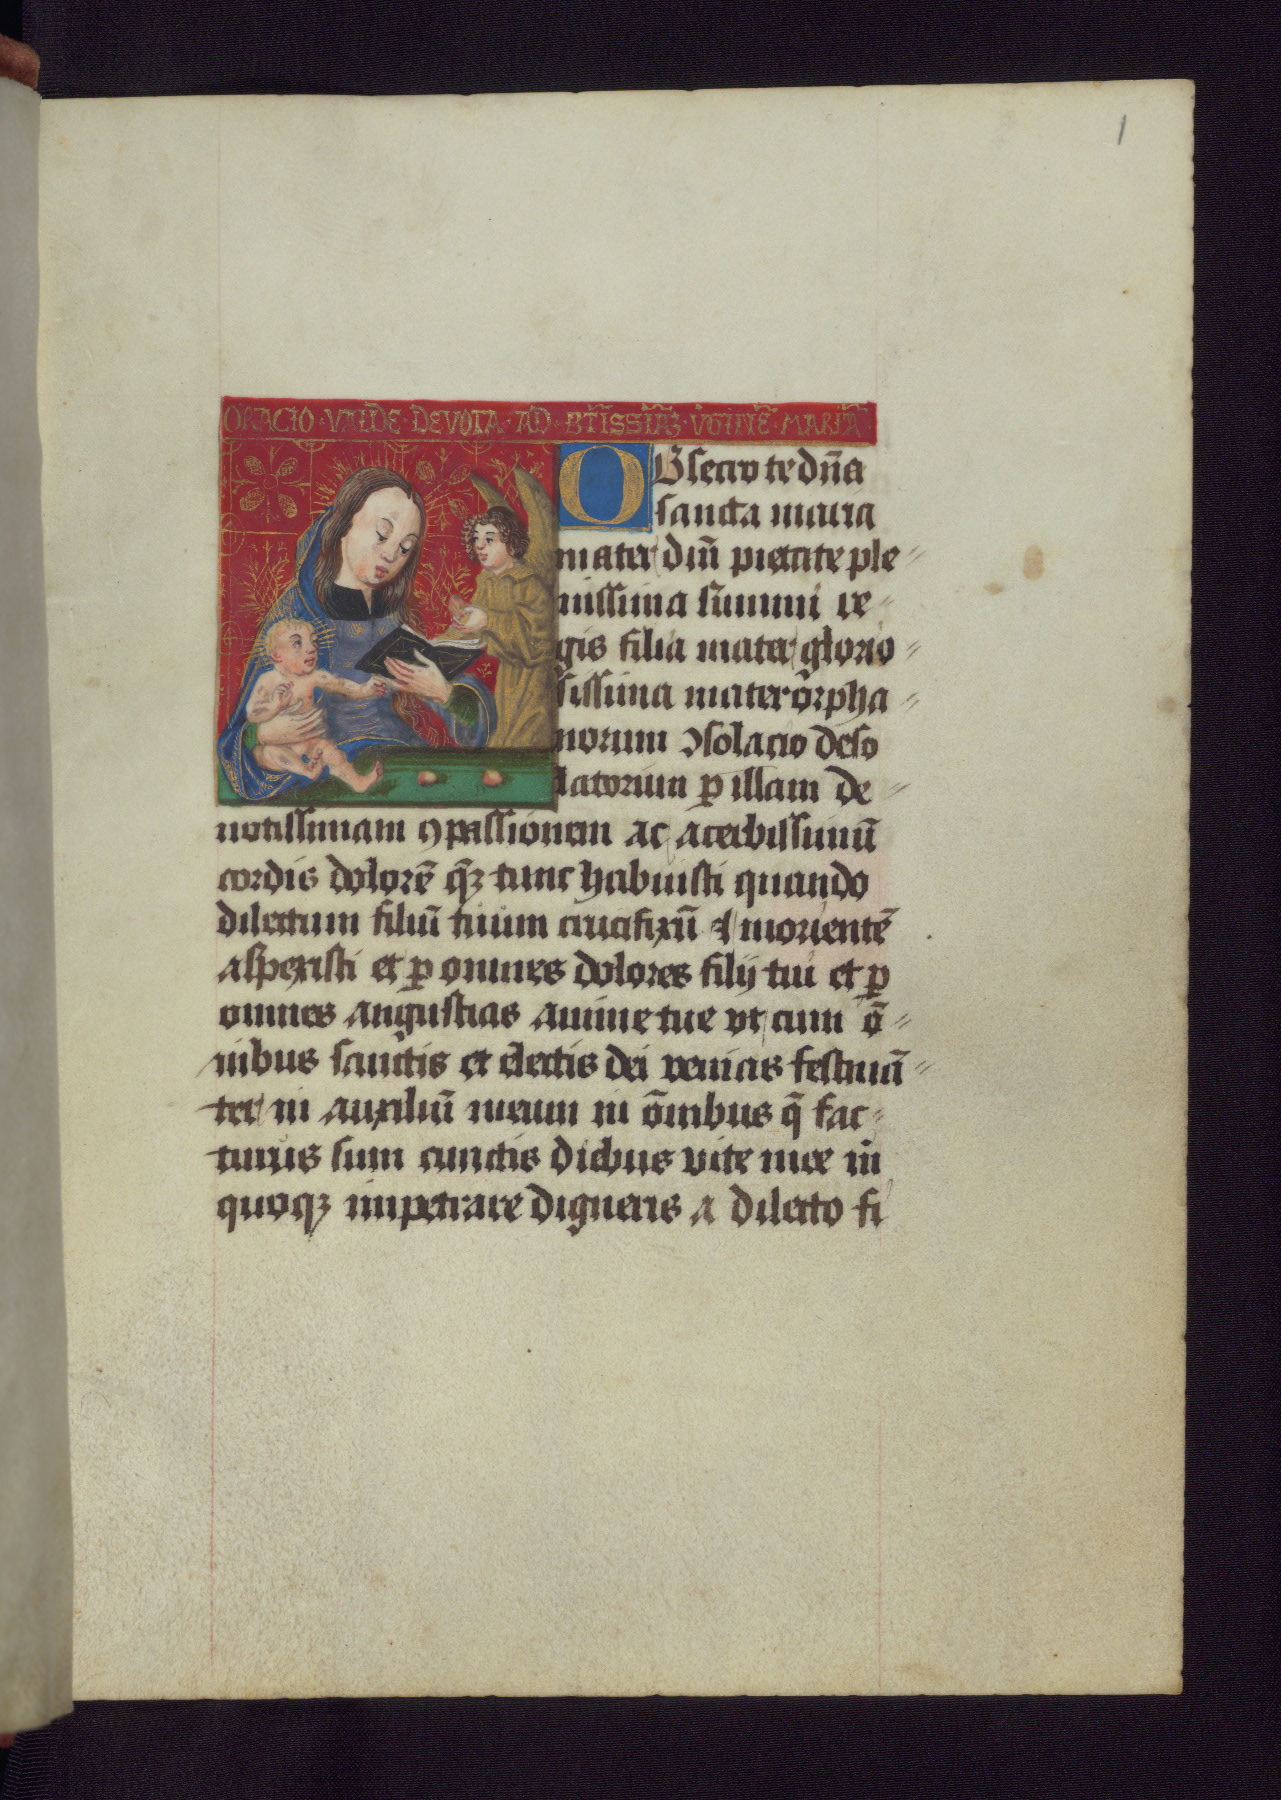 1
ORACIO · VALDE · DEVOTA · AD · BTĪSSIĀȜ · V̄GINĒ · MARIĀ
OBsecro te dn̄a
sancta maria
mater dei̅ pietate ple-
nissima su̅mmi re-
gis filia mater glorio-
sissima mater orpha-
norum ꝯsolacio deso
latorum ꝑ illam de-
uotissimam ꝯpassionem ac acerbissimu̅
cordis dolore̅ q̅ꝫ tunc habuisti quando
dilectum filiu̅ tuum crucifixu̅ ⁊ moriente̅
aspexisti et ꝑ omnes dolores filij tui et ꝑ
omnes angustias anime tue vt cum o̅-
nibus sanctis et electis dei venias festina̅-
ter in auxiliu̅ meum in o̅mibus q̅ fac-
turus sum cunctis diebus vite mee m̄
quoqꝫ impetrare digneris a dilecto fi